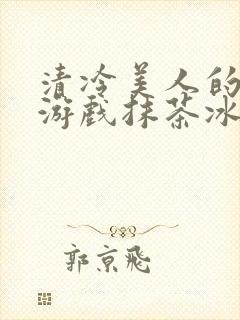 清冷美人的
游戏抹茶冰
郭京飛